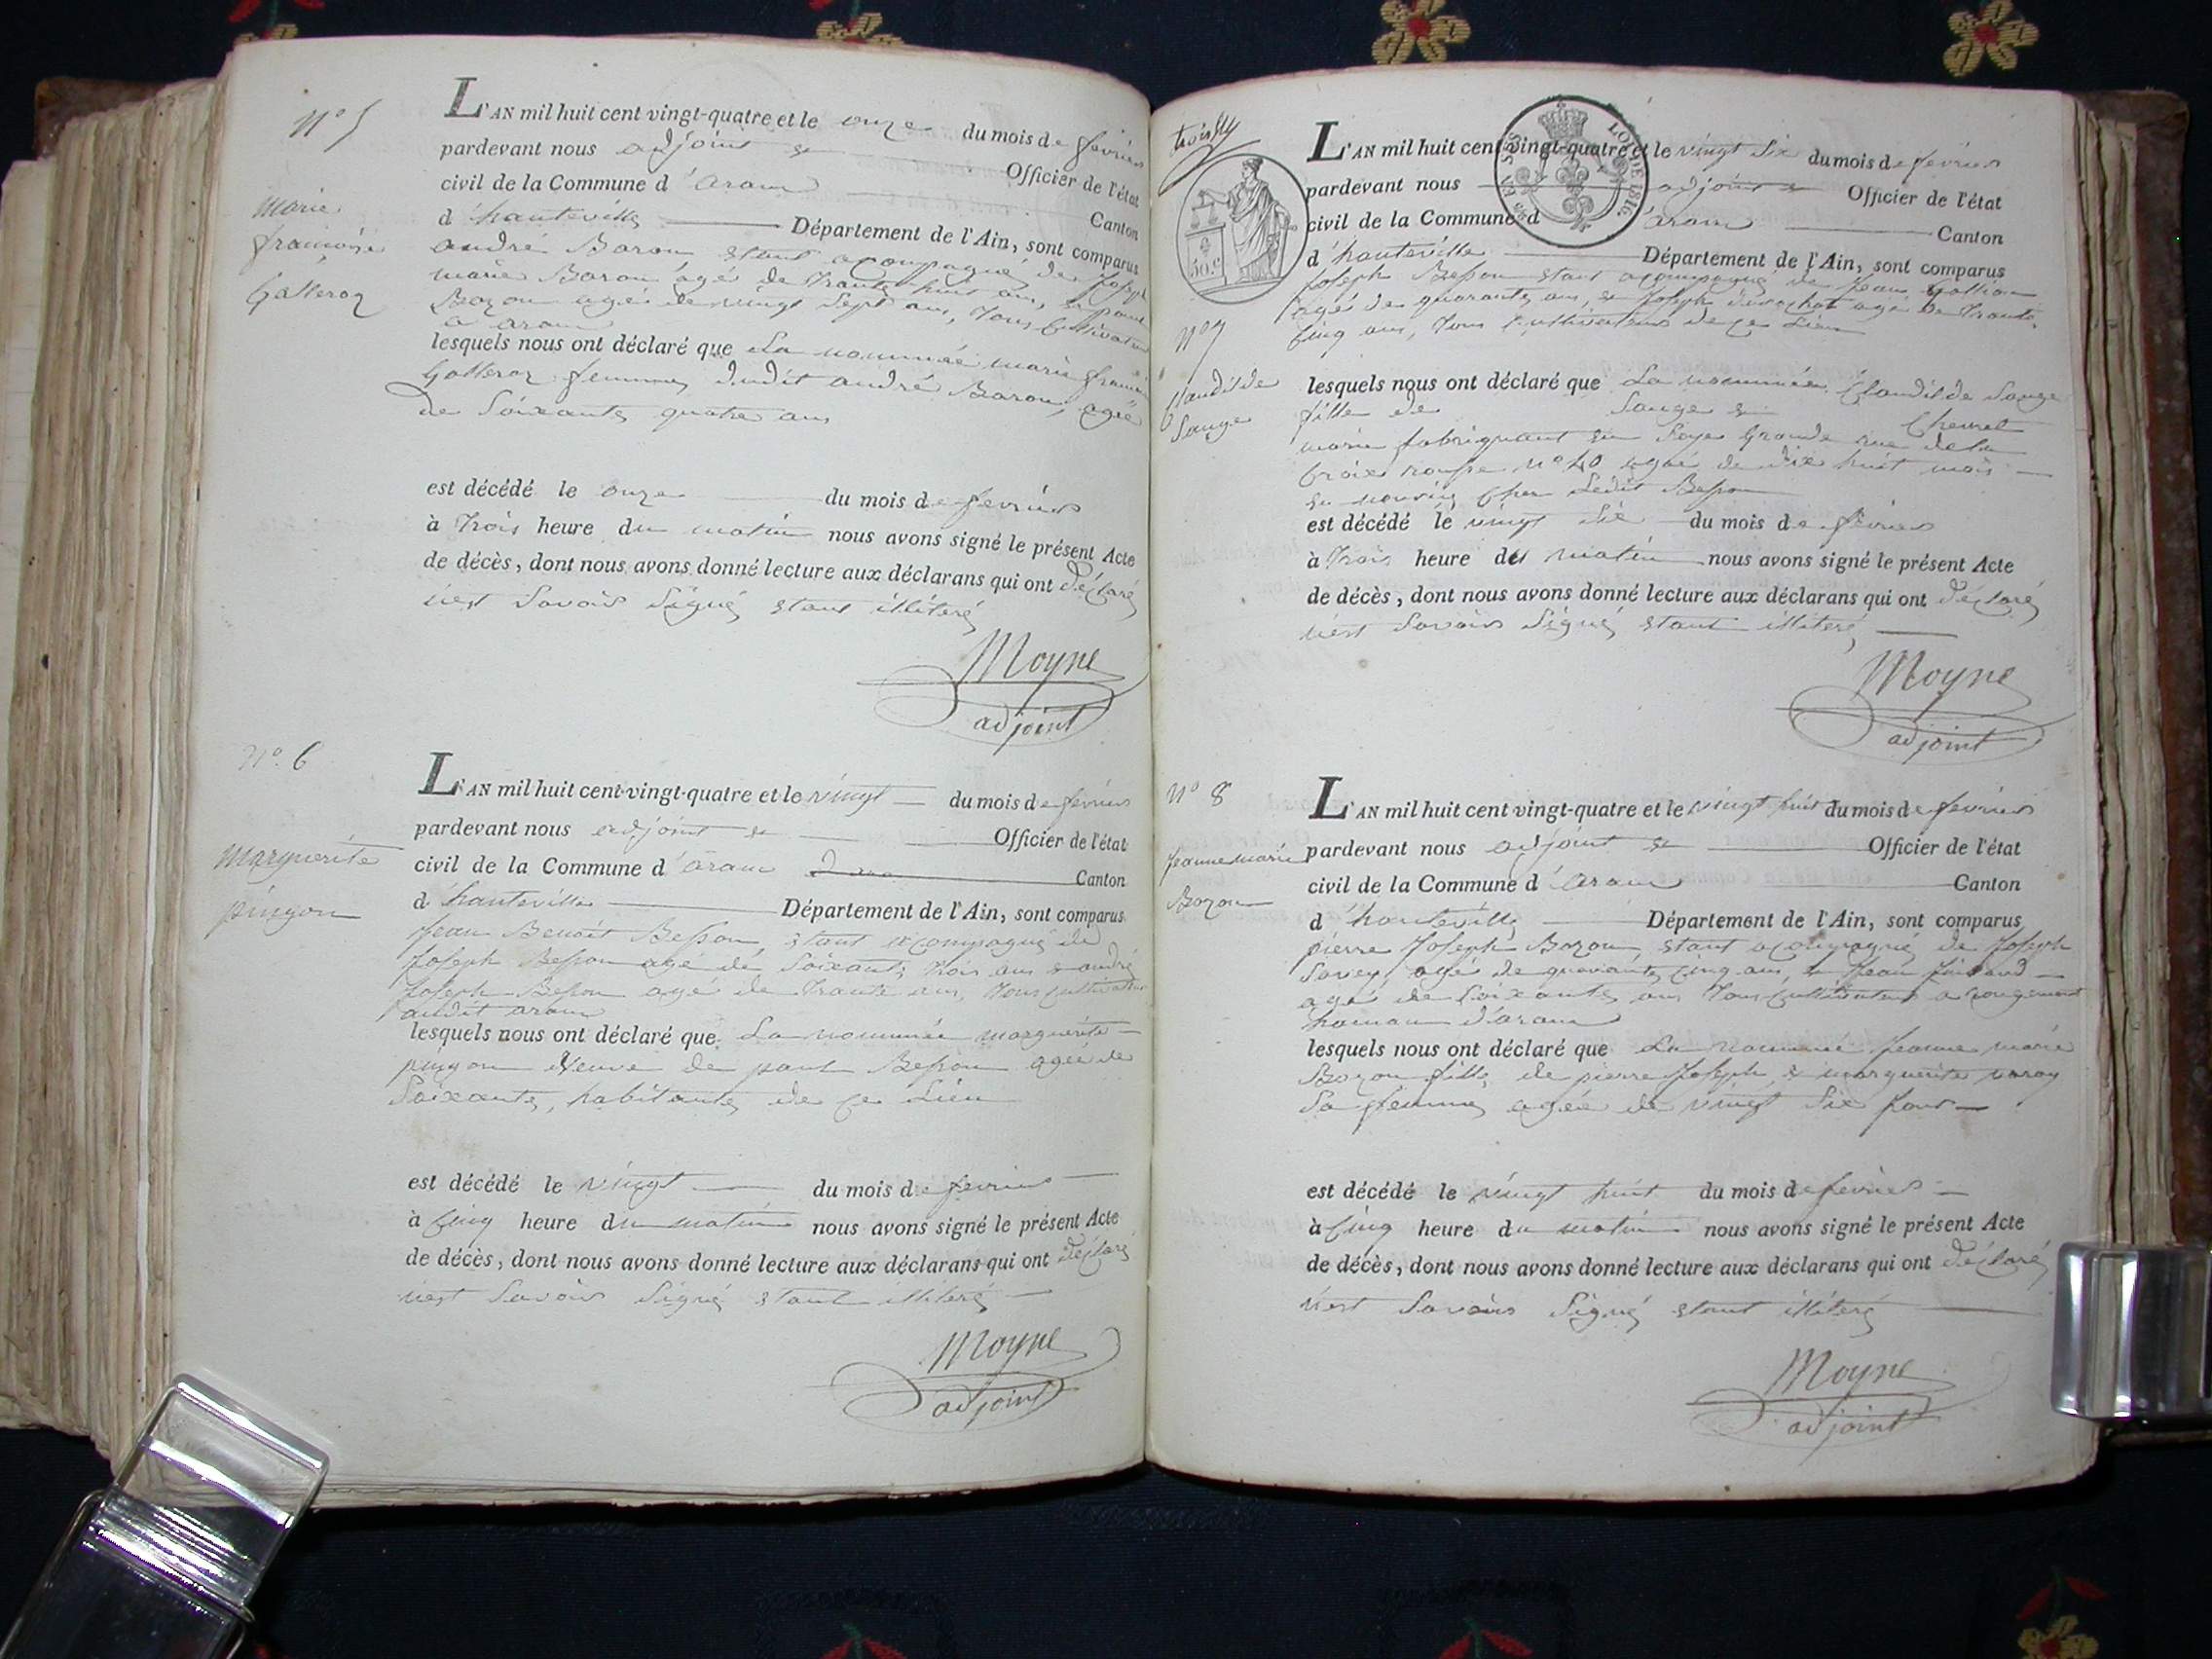 N° 5
Marie
françoise
Galleroz
L'AN mil huit cent vingt-quatre et le onze du mois de fevrier
pardevant nous adjoint et Officier de l'état
civil de la Commune d'aranc Canton
d'hauteville Département de l'Ain, sont comparus
andré Baron étant acompagné de Joseph
marie Baron agé de trante huit ans,
Bozon agé de vingt sept ans, tous Cultivateurs
a aranc
lesquels nous ont déclaré que La nommée marie françoise
Galleroz femme dudit andré Baron, agée
de Soixante quatre ans
est décédé le onze du mois de fevrier
à trois heure du matin nous avons signé le présent Acte
de décès, dont nous avons donné lecture aux déclarans qui ont déclaré
n'est Savoir Signé étant illiteré
Moyne
adjoint
N° 6
Marguerite
pingon
L'AN mil huit cent vingt-quatre et le vingt du mois de fevrier
pardevant nous adjoint et Officier de l'état
civil de la Commune d'aranc Canton
d'hauteville Département de l'Ain, sont comparus
Jean Benoit Besson, étant acompagné de
Joseph Besson agé de Soixante trois ans & andré
Joseph Besson agé de trante ans, tous Cultivateurs
audit aranc
lesquels nous ont déclaré que La nommée marguerite
pingon Veuve de paul Besson agée de
Soixante, habitante de ce Lieu
est décédé le vingt du mois de fevrier
à Cinq heure du matin nous avons signé le présent Acte
de décès, dont nous avons donné lecture aux déclarans qui ont déclaré
n'est Savoir Signé étant illiteré
Moyne
adjoint
50.c
LOI DE 1816.
N° 7
Claudilde
Sauge
L'AN mil huit cent vingt-quatre et le vingt Six du mois de fevrier
pardevant nous adjoint et Officier de l'état
civil de la Commune d'aranc Canton
d'hauteville Département de l'Ain, sont comparus
Joseph Besson étant acompagné de Jean Gallion
agé de quarante ans, & Joseph agé de trante
Cinq ans, tous Cultivateurs de ce Lieu
lesquels nous ont déclaré que La nommée Claudilde Sauge
fille de Sauge & Chevret
marie fabriquant en Soye Grande rue de la
Croix rousse N° 40 agée de dix huit mois
en nourice Chez Ledit Besson
est décédé le vingt Six du mois de fevrier
à trois heure du matin nous avons signé le présent Acte
de décès, dont nous avons donné lecture aux déclarans qui ont déclaré
n'est Savoir Signé étant illiteré
Moyne
adjoint
N° 8
Jeanne marie
Bozon
L'AN mil huit cent vingt-quatre et le vingt huit du mois de fevrier
pardevant nous adjoint et Officier de l'état
civil de la Commune d'aranc Canton
d'hauteville Département de l'Ain, sont comparus
pierre Joseph Bozon, étant acompagné de Joseph
Savey, agé de quarante Cinq ans, & Jean
agé de Soixante ans tous Cultivateurs a rougemont
hamau d'aranc
lesquels nous ont déclaré que La nommée Jeanne marie
Bozon fille de pierre Joseph, & marguerite
Sa femme agée de vingt Six Jour
est décédé le vingt huit du mois de fevrier
à Cinq heure du matin nous avons signé le présent Acte
de décès, dont nous avons donné lecture aux déclarans qui ont déclaré
n'est Savoir Signé étant illiteré
Moyne
adjoint